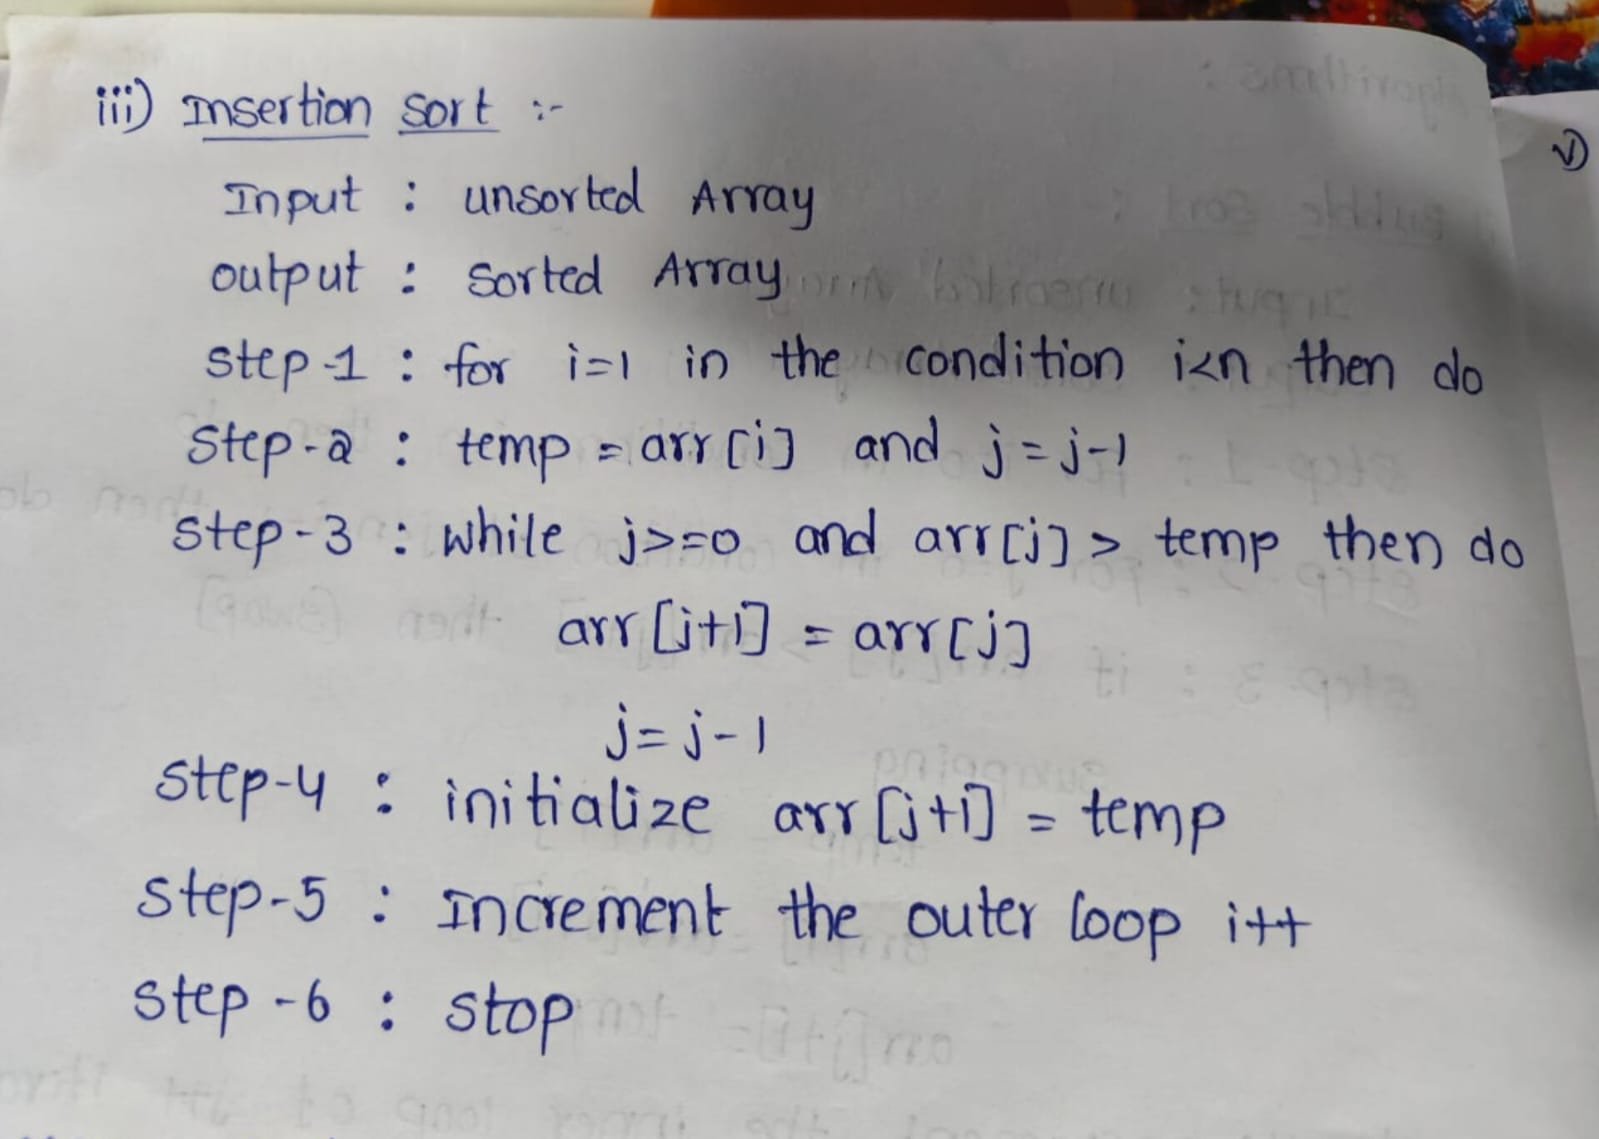 iii) Insertion Sort :-
Input : unsorted Array
output : Sorted Array
Step-1 : for i=1 in the condition i<n then do
Step-2 : temp = arr[i] and j=j-1
Step-3 : while j>=0 and arr[j] > temp then do
arr[j+1] = arr[j]
j=j-1
Step-4 : initialize arr[j+1] = temp
Step-5 : Increment the outer loop i++
Step-6 : Stop
v)